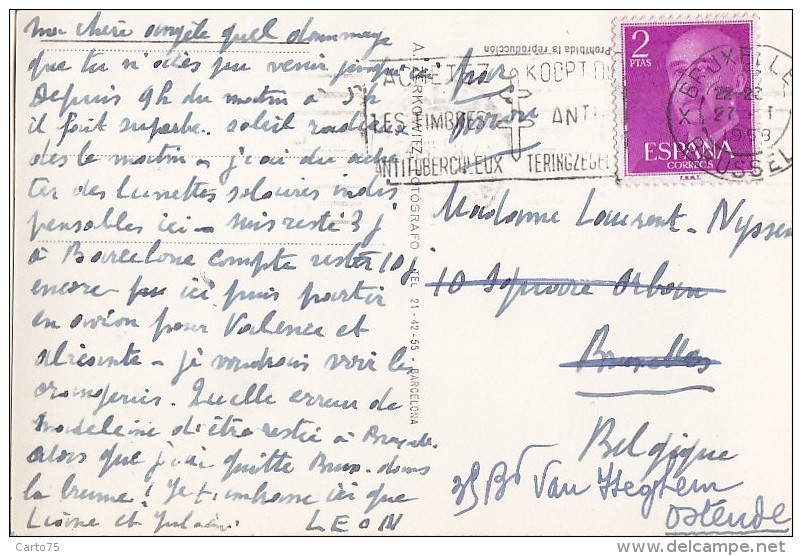 ma chère angèle quel dommage
que tu n'aies pu venir jusqu'
Depuis 9h du matin à 5h
il fait superbe. soleil radieux
dès le matin - j'ai du ache
ter des lunettes solaires indis
pensables ici - suis resté 3 j
à Barcelone compte rester 10 j
encore ici puis partir
en avion pour Valence et
alicante - je voudrais voir les
orangeries. Quelle erreur de
madeleine d'être restée à
alors que j'ai quitté Brux. dans
la brume! Je t'embrasse ici que
et LEON
A. ZERKOWITZ FOTÓGRAFO TEL 21-42-55 - BARCELONA
Prohibida la reproducción
par
avion
ACHETEZ
LES TIMBRES
ANTITUBERCULEUX
KOOPT DE
ANTI
TERINGZEGELS
2
PTAS
ESPAÑA
CORREOS
F.N.M.T.
BRUXELLES X
1958
BRUSSEL
Madame Laurent-Nyssens
10 Square Orban
Bruxelles
Belgique
35 Bd Van Iseghem
Ostende
Carto75
http://www.delcampe.net